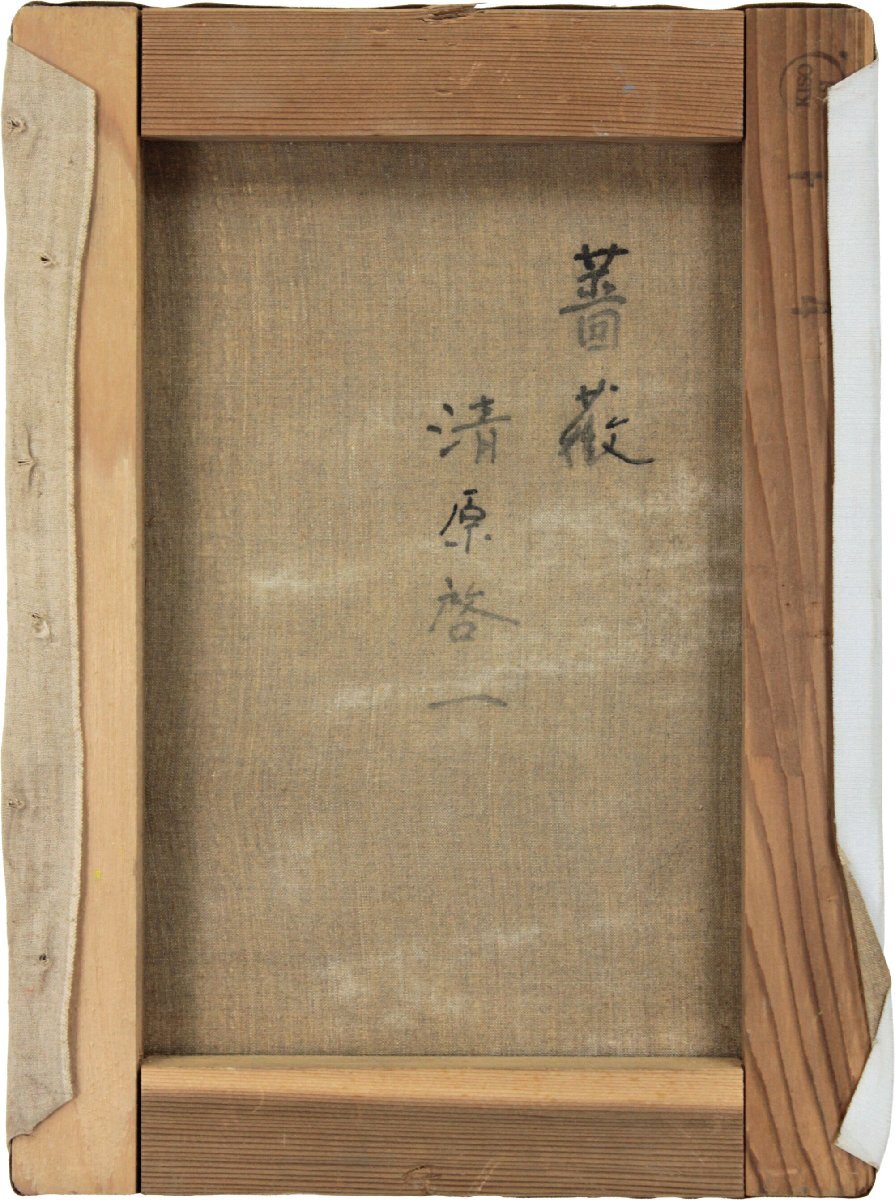 薔薇
清原啓一
KISO